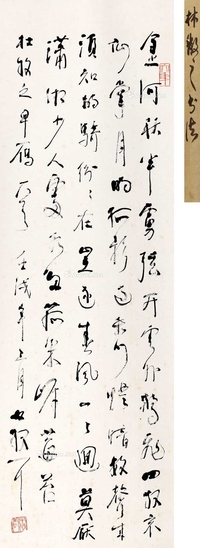 林散之书法
金河秋半虜弦开雲外驚飛四散哀
仙掌月明孤影过长门燈暗数聲来
须知胡騎紛紛在豈逐春風一一迴莫厭
瀟湘少人處水多菰米岸莓苔
杜牧之早雁 壬戌年 月 散耳